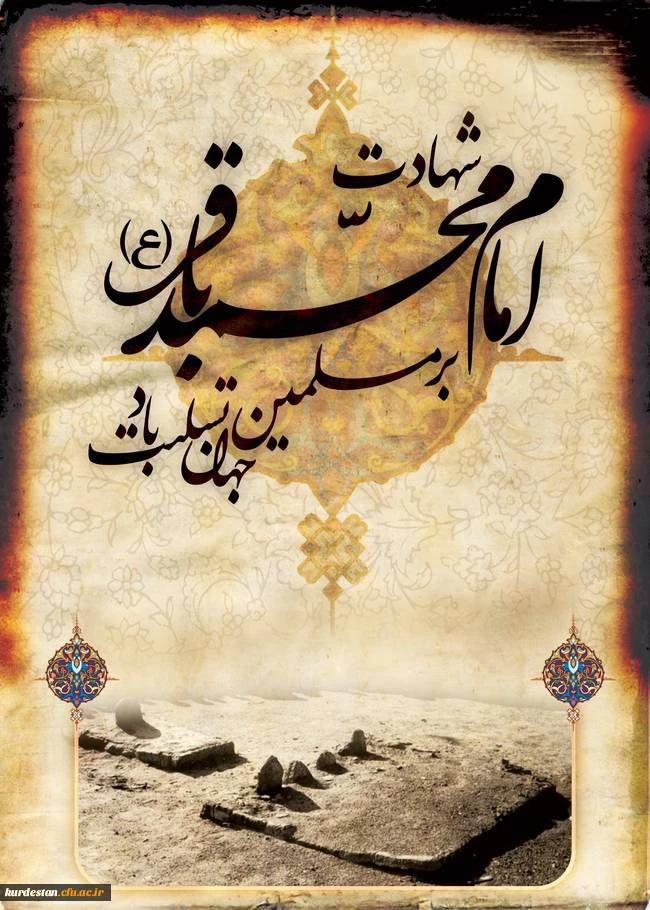 شهادت
امام محمّد باقر (ع)
بر مسلمین
جهان تسلیت باد
kurdestan.cfu.ac.ir